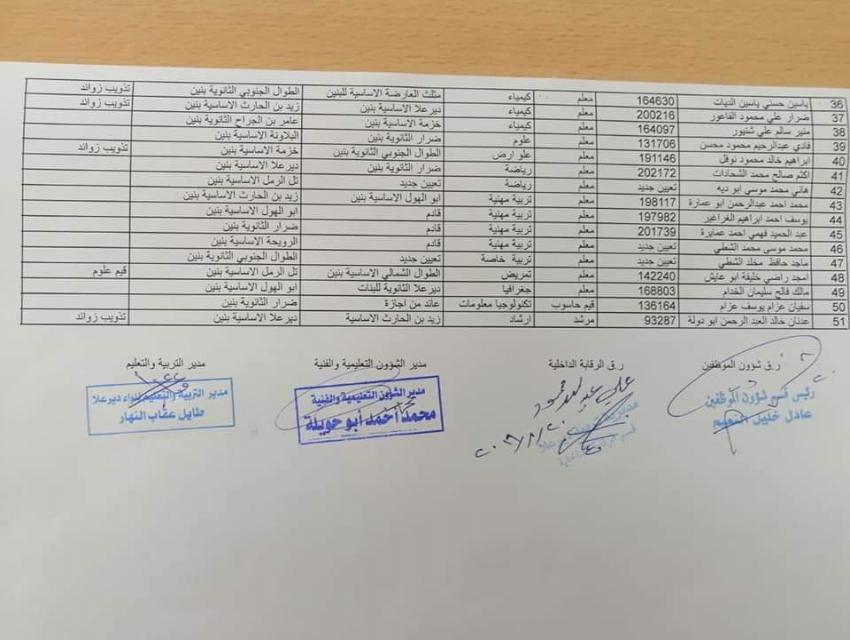 36 ياسين حسني ياسين الديات 164630 معلم كيمياء مثلث العارضة الاساسية للبنين الطوال الجنوبي الثانوية بنين تذويب زوائد
37 ضرار علي محمود الفاعور 200216 معلم كيمياء ديرعلا الاساسية بنين زيد بن الحارث الاساسية بنين تذويب زوائد
38 منير سالم علي شتيور 164097 معلم كيمياء خزمة الاساسية بنين عامر بن الجراح الثانوية بنين
39 فادي عبدالرحيم محمود محسن 131706 معلم علوم ضرار الثانوية بنين البلاونة الاساسية بنين
40 ابراهيم خالد محمود نوفل 191146 معلم علو ارض الطوال الجنوبي الثانوية بنين خزمة الاساسية بنين تذويب زوائد
41 اكثم صالح محمد الشحادات 202172 معلم رياضة ضرار الثانوية بنين ديرعلا الاساسية بنين
42 هاني محمد موسى ابو ديه تعيين جديد معلم رياضة تعيين جديد تل الرمل الاساسية بنين
43 محمد احمد عبدالرحمن ابو عمارة 198117 معلم تربية مهنية ابو الهول الاساسية بنين زيد بن الحارث الاساسية بنين
44 يوسف احمد ابراهيم الغراغير 197982 معلم تربية مهنية قادم ابو الهول الاساسية بنين
45 عبد الحميد فهمي احمد عمايرة 201739 معلم تربية مهنية قادم ضرار الثانوية بنين
46 محمد موسى محمد الشطي تعيين جديد معلم تربية مهنية قادم الرويحة الاساسية بنين
47 ماجد حافظ مخلد الشطي تعيين جديد معلم تربية خاصة تعيين جديد الطوال الجنوبي الثانوية بنين
48 امجد راضي خليفة ابو عايش 142240 معلم تمريض الطوال الشمالي الاساسية بنين تل الرمل الاساسية بنين قيم علوم
49 مالك فالح سليمان الخدام 168803 معلم جغرافيا ديرعلا الثانوية للبنات ابو الهول الاساسية بنين
50 سفيان عزام يوسف عزام 136164 قيم حاسوب تكنولوجيا معلومات عائد من اجازة ضرار الثانوية بنين
51 عدنان خالد العبد الرحمن ابو دولة 93287 مرشد ارشاد زيد بن الحارث الاساسية ديرعلا الاساسية بنين تذويب زوائد
ر.ق شؤون الموظفين ر.ق الرقابة الداخلية مدير الشؤون التعليمية والفنية مدير التربية والتعليم
رئيس قسم شؤون الموظفين
عادل خليل النعيم
مدير الشؤون التعليمية والفنية
محمد أحمد أبو حويلة
مدير التربية والتعليم لواء ديرعلا
طايل عقاب النهار